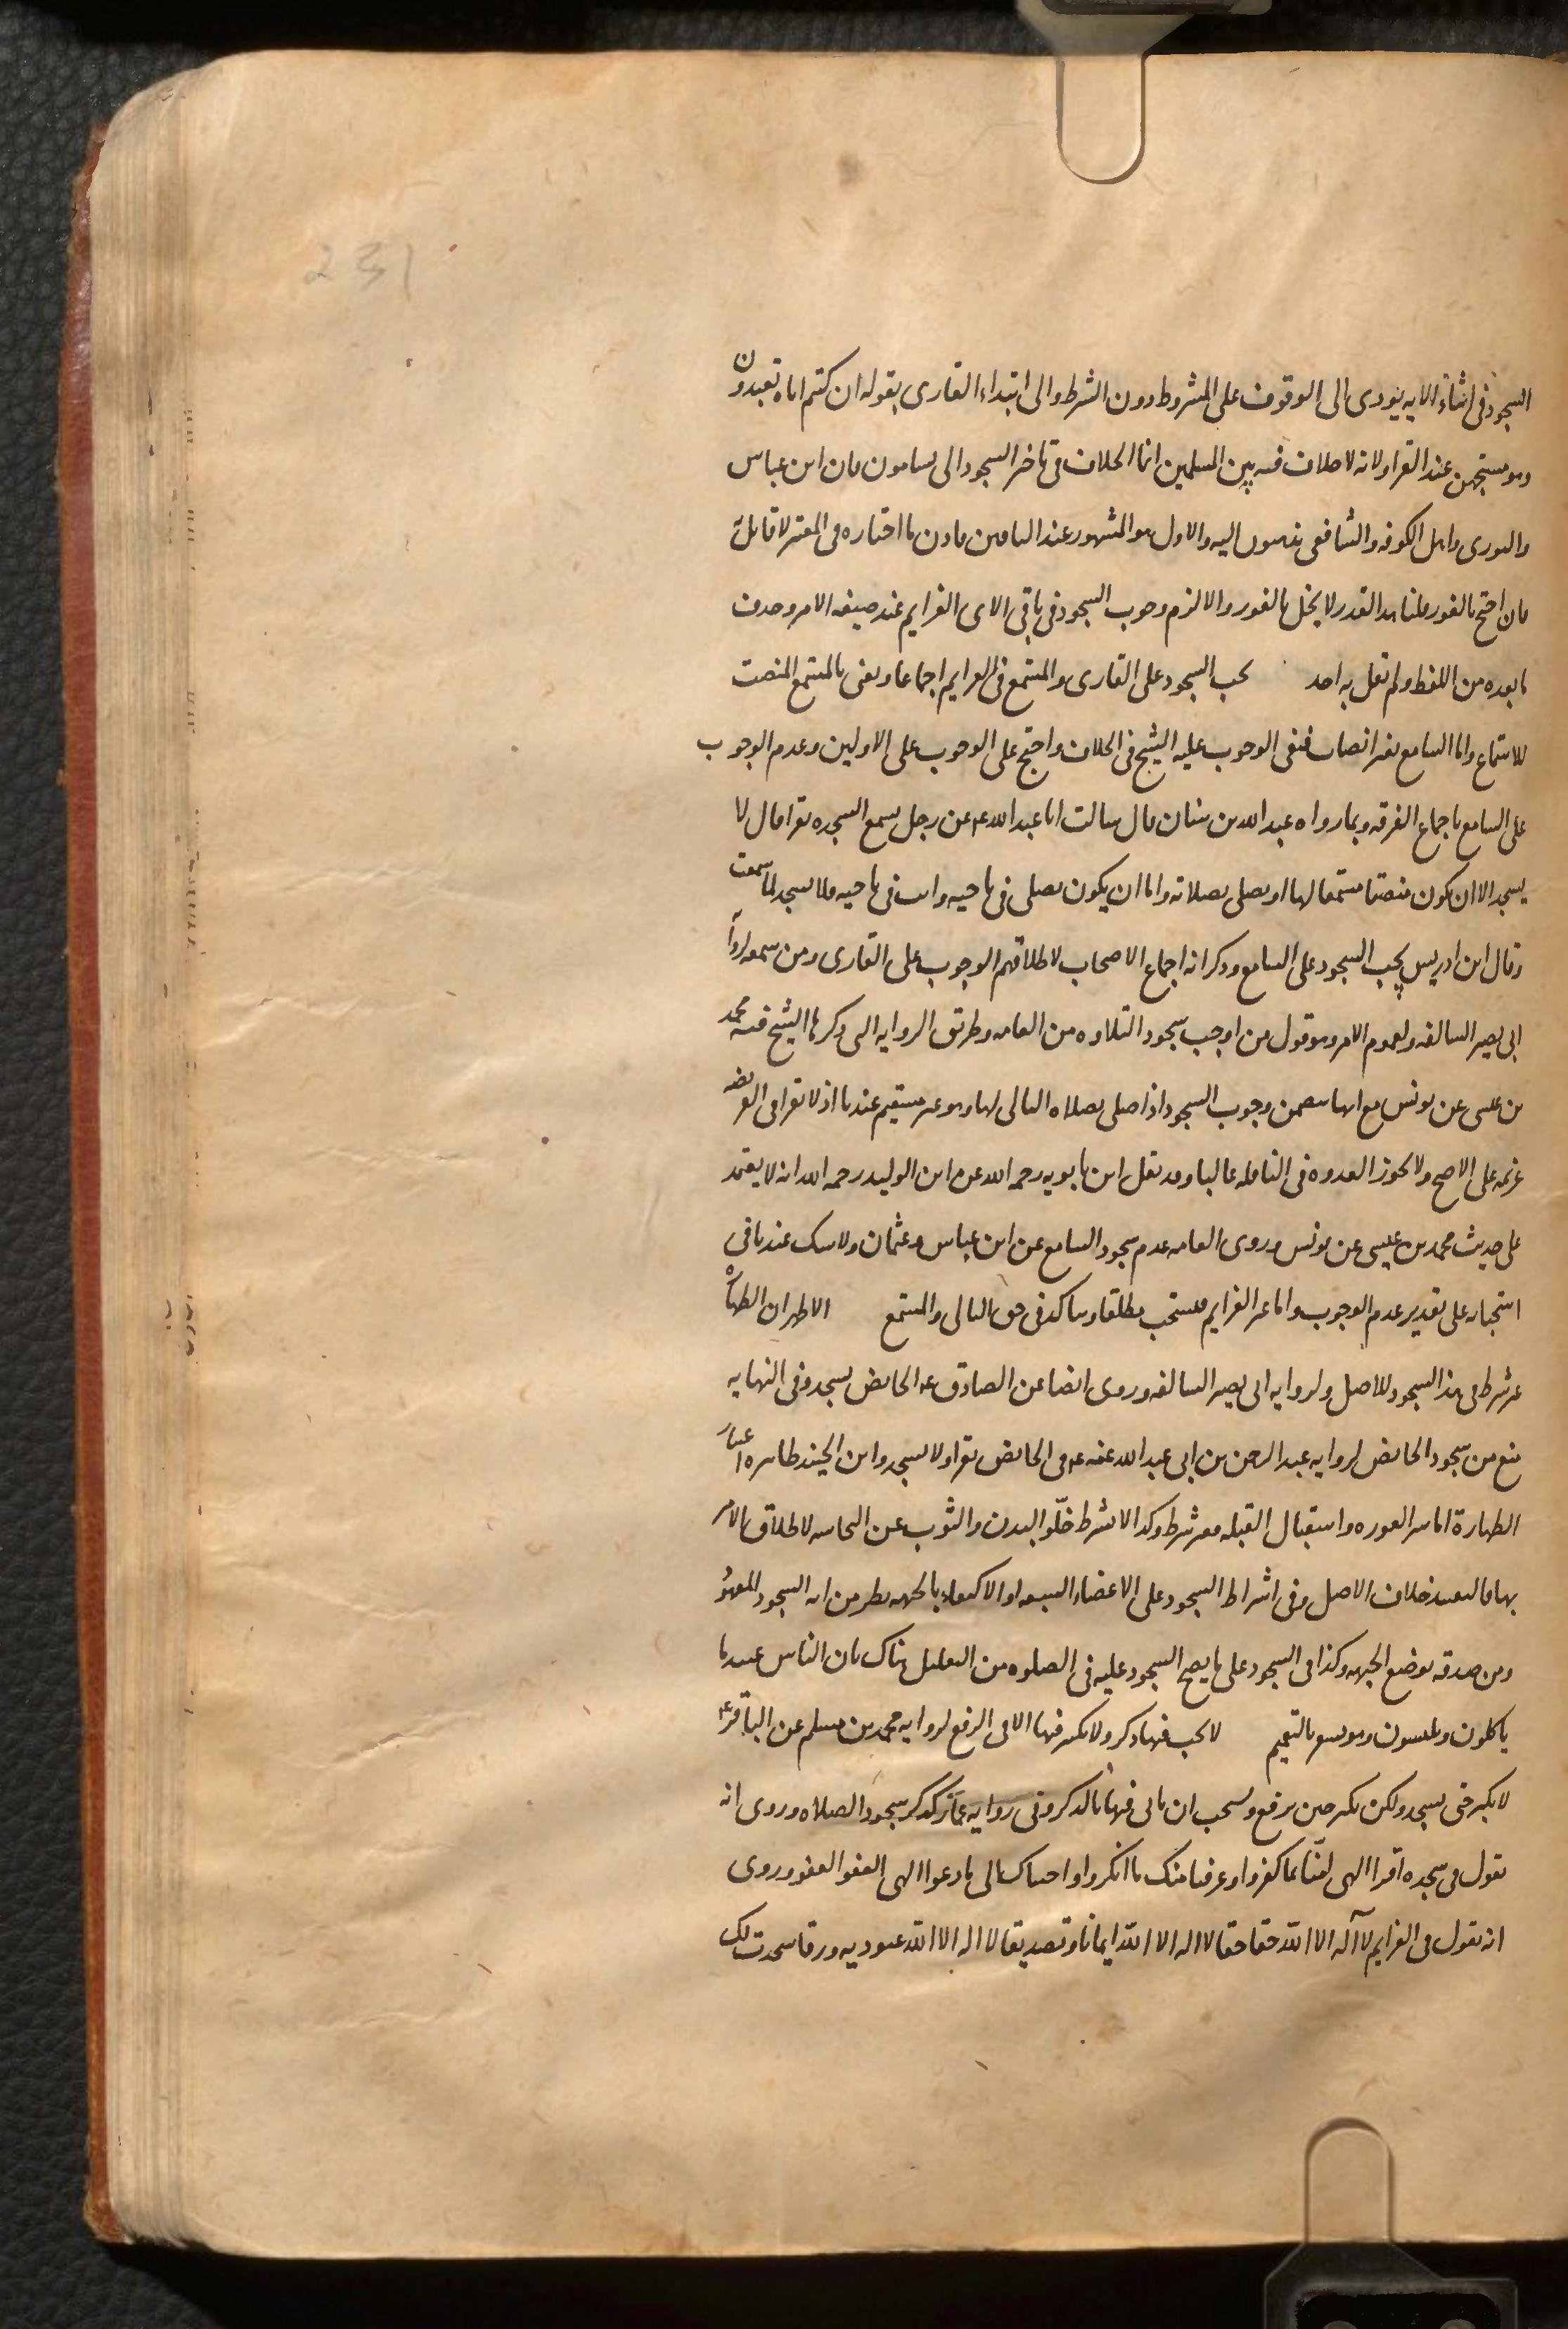 231
السجود فى اثناء الايه يودى الى الوقوف على المشروط دون الشرط والى ابتداء القارى بقوله ان كنتم اياه تعبدون
وهو مستهجن عند القراء ولانه لا خلاف فيه بين المسلمين انما الخلاف فى تاخير السجود الى يسامون فان ابن عباس
والثورى واهل الكوفه والشافعى يذهبون اليه والاول هو المشهور عند الباقين فاذن ما اختاره فى المعتبر لا قائل به
فان احتج بالفور قلنا هذا القدر لا يخل بالفور والا لزم وجوب السجود فى باقى الاى العزايم عند صيغه الامر وحذف
ما بعده من اللفظ ولم يقل به احد يجب السجود على القارى والمستمع فى العزايم اجماعا ونعنى بالمستمع المنصت
للاستماع واما السامع بغير انصات فنفى الوجوب عليه الشيخ فى الخلاف واحتج على الوجوب على الاولين وعدم الوجوب
على السامع باجماع الفرقه وبما رواه عبد الله بن سنان قال سالت ابا عبد الله ع عن رجل يسمع السجده تقرا قال لا
يسجد الا ان يكون منصتا مستمعا لها او يصلى بصلاته واما ان يكون يصلى فى ناحيه وانت فى ناحيه فلا تسجد لما سمعت
وقال ابن ادريس يجب السجود على السامع وذكر انه اجماع الاصحاب لاطلاقهم الوجوب على القارى ومن سمعه لروايه
ابى بصير السالفه ولعموم الامر وهو قول من اوجب سجود التلاوه من العامه وطريق الروايه التى ذكرها الشيخ فيه محمد
بن عيسى عن يونس مع انها تتضمن وجوب السجود اذا صلى بصلاه التالى لها وهو غير مستقيم عندنا اذ لا تقرا فى الفريضه
عزيمه على الاصح ولا تجوز القدوه فى النافله غالبا وقد نقل ابن بابويه رحمه الله عن ابن الوليد رحمه الله انه لا يعتمد
على حديث محمد بن عيسى عن يونس وروى العامه عدم سجود السامع عن ابن عباس وعثمان ولا شك عندنا فى
استحبابه على تقدير عدم الوجوب واما غير العزايم فمستحب مطلقا ويتاكد فى حق التالى والمستمع الاظهر ان الطهاره
غير شرط فى هذا السجود للاصل ولروايه ابى بصير السالفه وروى ايضا عن الصادق ع الحائض تسجد وفى النهايه
منع من سجود الحائض لروايه عبد الرحمن بن ابى عبد الله عنه ع فى الحائض تقرا ولا تسجد وابن الجنيد ظاهره اعتبار
الطهارة اما ستر العوره واستقبال القبله فغير شرط وكذا لا يشترط خلّو البدن والثوب عن النجاسه لاطلاق الامر
بها فالتقييد خلاف الاصل وفى اشتراط السجود على الاعضاء السبعه او الاكتفاء بالجبهه نظر من انه السجود المعهود
ومن صدقه بوضع الجبهه وكذا فى السجود على ما يصح السجود عليه فى الصلوه من التعليل هناك بان الناس عبيد ما
ياكلون ويلبسون وهو يشعر بالتعميم لا يجب فيها ذكر ولا تكبير فيها الا فى الرفع لروايه محمد بن مسلم عن الباقر ع
لا يكبر حتى يسجد ولكن يكبر حين يرفع ويستحب ان ياتى فيها بالذكر وفى روايه عمار كذكر سجود الصلاه وروى انه
يقول فى سجده اقرا الهى امنّا بما كفروا وعرفنا منك ما انكروا واجبناك الى ما دعوا الهى العفو العفو وروى
انه يقول فى العزايم لا اله الا الله حقا حقا لا اله الا الله ايمانا وتصديقا لا اله الا الله عبوديه ورقا سجدت لك